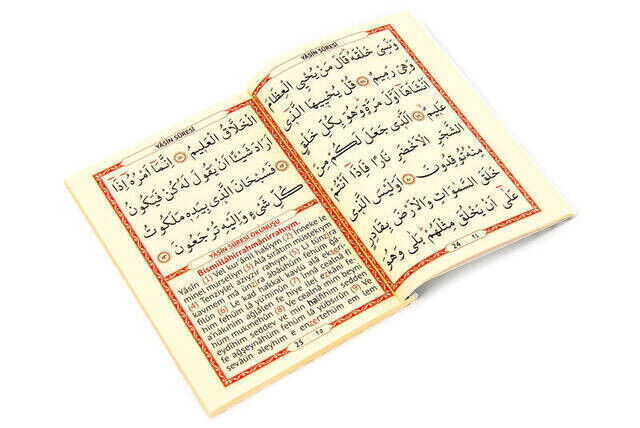 YÂSÎN SÛRESİ
وَنَسِىَ خَلْقَهُ قَالَ مَنْ يُحْىِ الْعِظَامَ
وَهِىَ رَمِيمٌ ﴿٧٨﴾ قُلْ يُحْيِيهَا الَّذِى
اَنْشَاَهَا اَوَّلَ مَرَّةٍ وَهُوَ بِكُلِّ خَلْقٍ
عَلِيمٌ ﴿٧٩﴾ اَلَّذِى جَعَلَ لَكُمْ مِنَ
الشَّجَرِ الْاَخْضَرِ نَارًا فَاِذَا اَنْتُمْ
مِنْهُ تُوقِدُونَ ﴿٨٠﴾ اَوَلَيْسَ الَّذِى
خَلَقَ السَّمٰوَاتِ وَالْاَرْضَ بِقَادِرٍ
عَلٰى اَنْ يَخْلُقَ مِثْلَهُمْ بَلٰى وَهُوَ
24 ٢٤
YÂSÎN SÛRESİ
الْخَلَّاقُ الْعَلِيمُ ﴿٨١﴾ اِنَّمَا اَمْرُهُ اِذَا
اَرَادَ شَيْئًا اَنْ يَقُولَ لَهُ كُنْ فَيَكُونُ
﴿٨٢﴾ فَسُبْحَانَ الَّذِى بِيَدِهِ مَلَكُوتُ
كُلِّ شَىْءٍ وَاِلَيْهِ تُرْجَعُونَ ﴿٨٣﴾
YÂSÎN SÛRESİ OKUNUŞU
Bismillâhirrahmânirrahıym.
Yâsîn (1) Vel kur'ânil hakiym (2) İnneke le
minel murseliyn (3) Alâ sırâtım müstekıym
(4) Tenziylel azıyzir rahıym (5) Li tünzira
kavmem mâ ünzira âbâühüm fehüm ğâ-
filûn (6) Le kad hakkal kavlü alâ ekseri-
him fehüm lâ yü'minûn (7) İnnâ cealnâ fî
a'nâkıhim ağlâlen fe hiye ilel ezkâni fe-
hüm mukmehûn (8) Ve cealnâ mim beyni
eydîhim seddev ve min halfihim sedden
fe ağşeynâhüm fehüm lâ yübsırûn (9) Ve
sevâün aleyhim e enzertehüm em lem
25 ٢٥